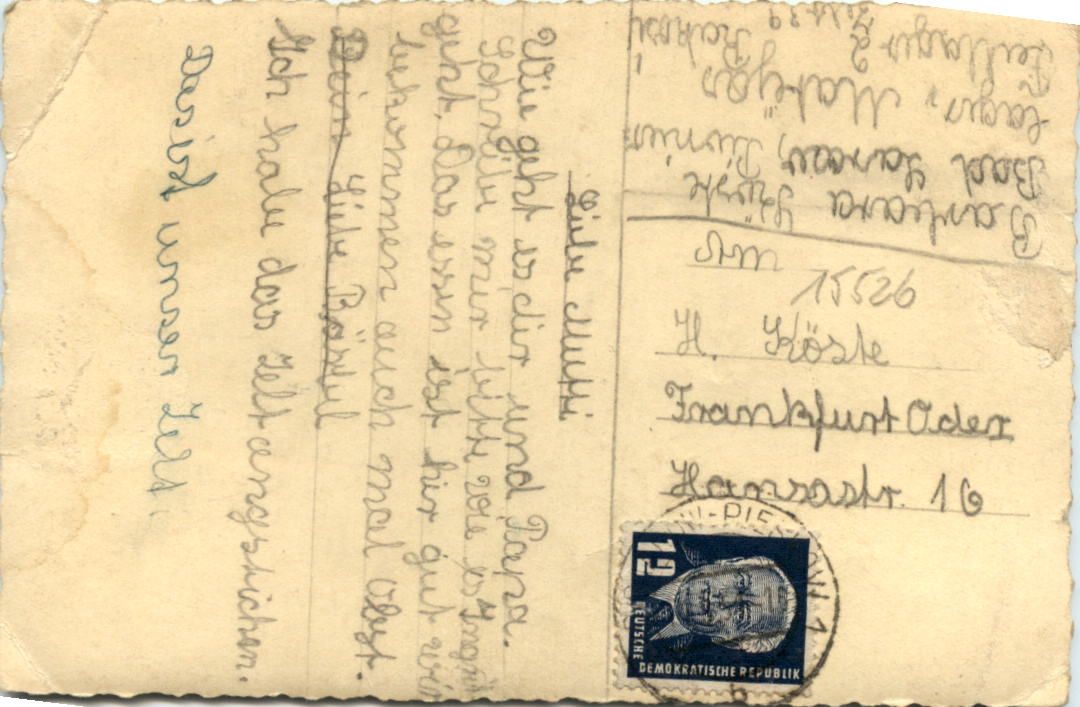 Liebe Mutti
Wie geht es dir und Papa.
Schreibe mir bitte wie es
geht. Das essen ist hir gut wir
bekommen auch mal Obst.
Dein Liebe Bärbel
Ich habe das Zelt angestrichen.
Das ist unser Zelt.
Barbara Köste
Bad Saarow, Pionier
lager, Matyas
Zeltlager 2 Rakosi
Zelt 29
An
15526
H. Köste
Frankfurt Oder
Hansastr. 16
12
DEUTSCHE
DEMOKRATISCHE REPUBLIK
-PIESKOW 1